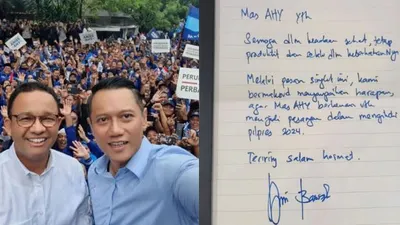 PERU
PERBA
Mas AHY yth
Semoga dlm keadaan sehat, tetap
produktif dan selalu dlm keberkahanNya
Melalui pesan singkat ini, kami
bermaksud menyampaikan harapan,
agar Mas AHY berkenan utk
menjadi pasangan dalam mengikuti
pilpres 2024.
Teriring salam hormat.